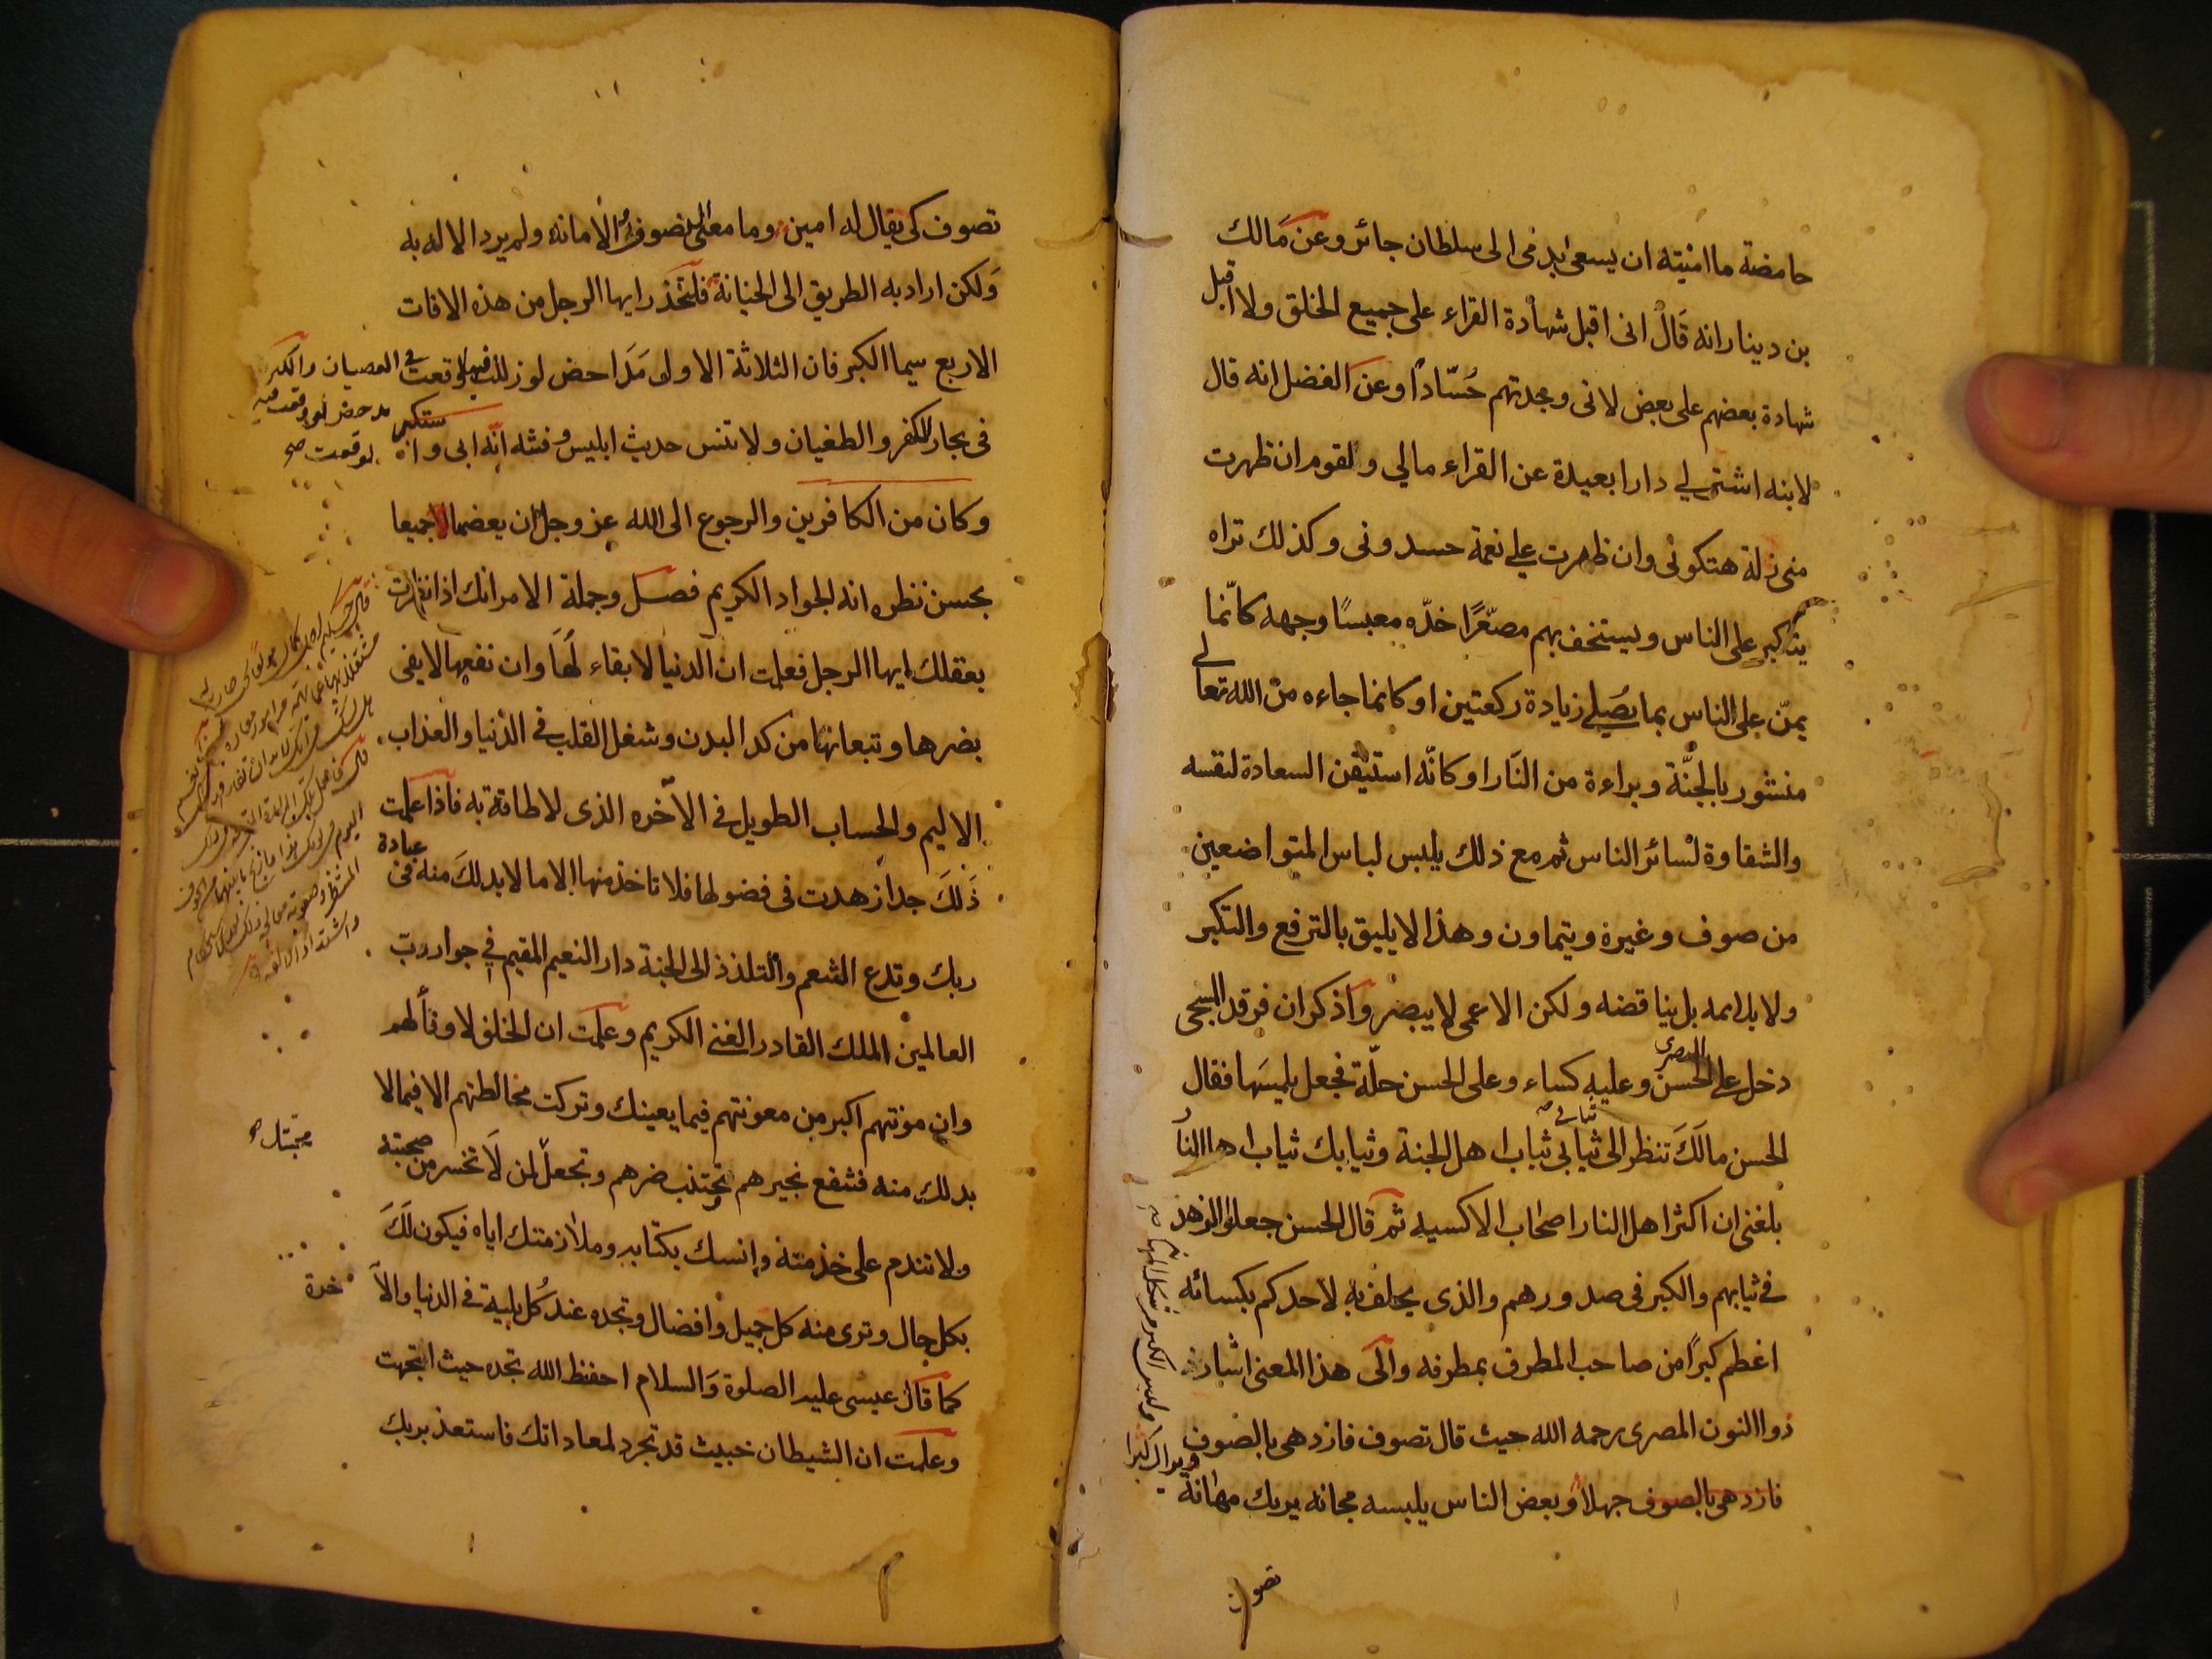 حامضة ما امنيته ان يسعى بدمى الى سلطان جائر وعن مالك
بن دينار انه قال انى اقبل شهادة القراء على جميع الخلق ولا اقبل
شهادة بعضهم على بعض لانى وجدتهم حسّادا وعن الفضل انه قال
لابنه اشتر لي دارا بعيدة عن القراء مالي ولقوم ان ظهرت
منى زلة هتكونى وان ظهرت علي نعمة حسدونى وكذلك تراه
يتكبر على الناس ويستخف بهم مصعّرًا خدّه معبسًا وجهه كانّما
يمنّ على الناس بما يصلي زيادة ركعتين او كانما جاءه من الله تعالى
منشور بالجنّة وبراءة من النار او كانّه استيقن السعادة لنفسه
والشقاوة لسائر الناس ثم مع ذلك يلبس لباس المتواضعين
من صوف وغيره ويتماوت وهذا لا يليق بالترفع والتكبر
ولا يلائمه بل يناقضه ولكن الاعمى لا يبصر واذكر ان فرقد السبخى
دخل على الحسن البصرى وعليه كساء وعلى الحسن حلّة فجعل يلمسها فقال
الحسن مالك تنظر الى ثيابى ثيابى ثياب اهل الجنة وثيابك ثياب اهل النار
بلغنى ان اكثر اهل النار اصحاب الاكسيه ثم قال الحسن جعلوا الزهد
فى ثيابهم والكبر فى صدورهم والذى يحلف به لاحدكم بكسائه
اعظم كبرًا من صاحب المطرف بمطرفه والى هذا المعنى اشار
ذوا النون المصرى رحمه الله حيث قال تصوف فازدهى بالصوف
فازدهى بالصوف جهلا وبعض الناس يلبسه مجانه يريك مهانة
تصوف
تصوف كى يقال له امين وما معنى التصوف الامانه ولم يرد الاله به
ولكن اراد به الطريق الى الخيانة فلتحذر ايها الرجل من هذه الافات
الاربع سيما الكبر فان الثلاثة الاول مداحض لو زللت فيها لوقعت في العصيان والكبر
مدحض لو وقعت فيه
فى بحار الكفر والطغيان ولا تنس حديث ابليس وفتنه انّه ابى واستكبر
لوقعت صح
وكان من الكافرين والرجوع الى الله عز وجل ان يعصمنا جميعا
بحسن نظره انه الجواد الكريم فصل وجملة الامر انك اذا نظرت
بعقلك ايها الرجل فعلمت ان الدنيا لا بقاء لها وان نفعها لا يفى
بضرها وتبعاتها من كد البدن وشغل القلب في الدنيا والعذاب
الاليم والحساب الطويل في الآخره الذى لا طاقة به فاذا علمت
ذلك جدا زهدت فى فضولها فلا تاخذ منها الا ما لا بد لك منه فى عبادة
ربك وتدع التنعم والتلذذ الى الجنة دار النعيم المقيم في جوار ربّ
العالمين الملك القادر الغني الكريم وعلمت ان الخلق لا وفاء لهم
وان مونتهم اكبر من معونتهم فيما يعينك وتركت مخالطتهم الا فيما لا
بد لك منه فتنفع بخيرهم وتجتنب ضرهم وتجعل لمن لا تخسر من صحبته
ولا تندم على خدمته وانسك بكتابه وملازمتك اياه فيكون لك
بكل حال وترى منه كل جميل وافضال وتجده عند كُل بلية في الدنيا والآ
خرة
كما قال عيسى عليه الصلوة والسلام احفظ الله تجده حيث اتجهت
وعلمت ان الشيطان خبيث قد تجرد لمعاداتك فاستعذ بربك